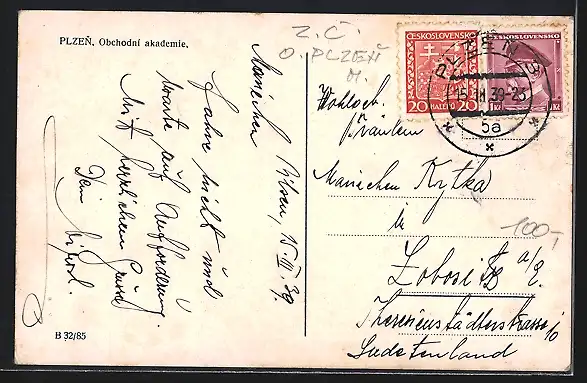 PLZEŇ, Obchodní akademie.
Z. Č.
O. PLZEŇ
M.
ČESKOSLOVENSKO
20 HALÉŘŮ 20
ČESKOSLOVENSKO
1 Kč
PLZEŇ
15. 39-23
5a
Pilsen, 15. 39.
Mariechen
Fahre nicht und
warte auf Aufforderung.
Mit herzlichem Gruss
Dein
Wohlgeb.
Fräulein
Mariechen Kytka
in
Lobositz a/E.
Theresienstädterstrasse 10
Sudetenland
100,-
B 32/85